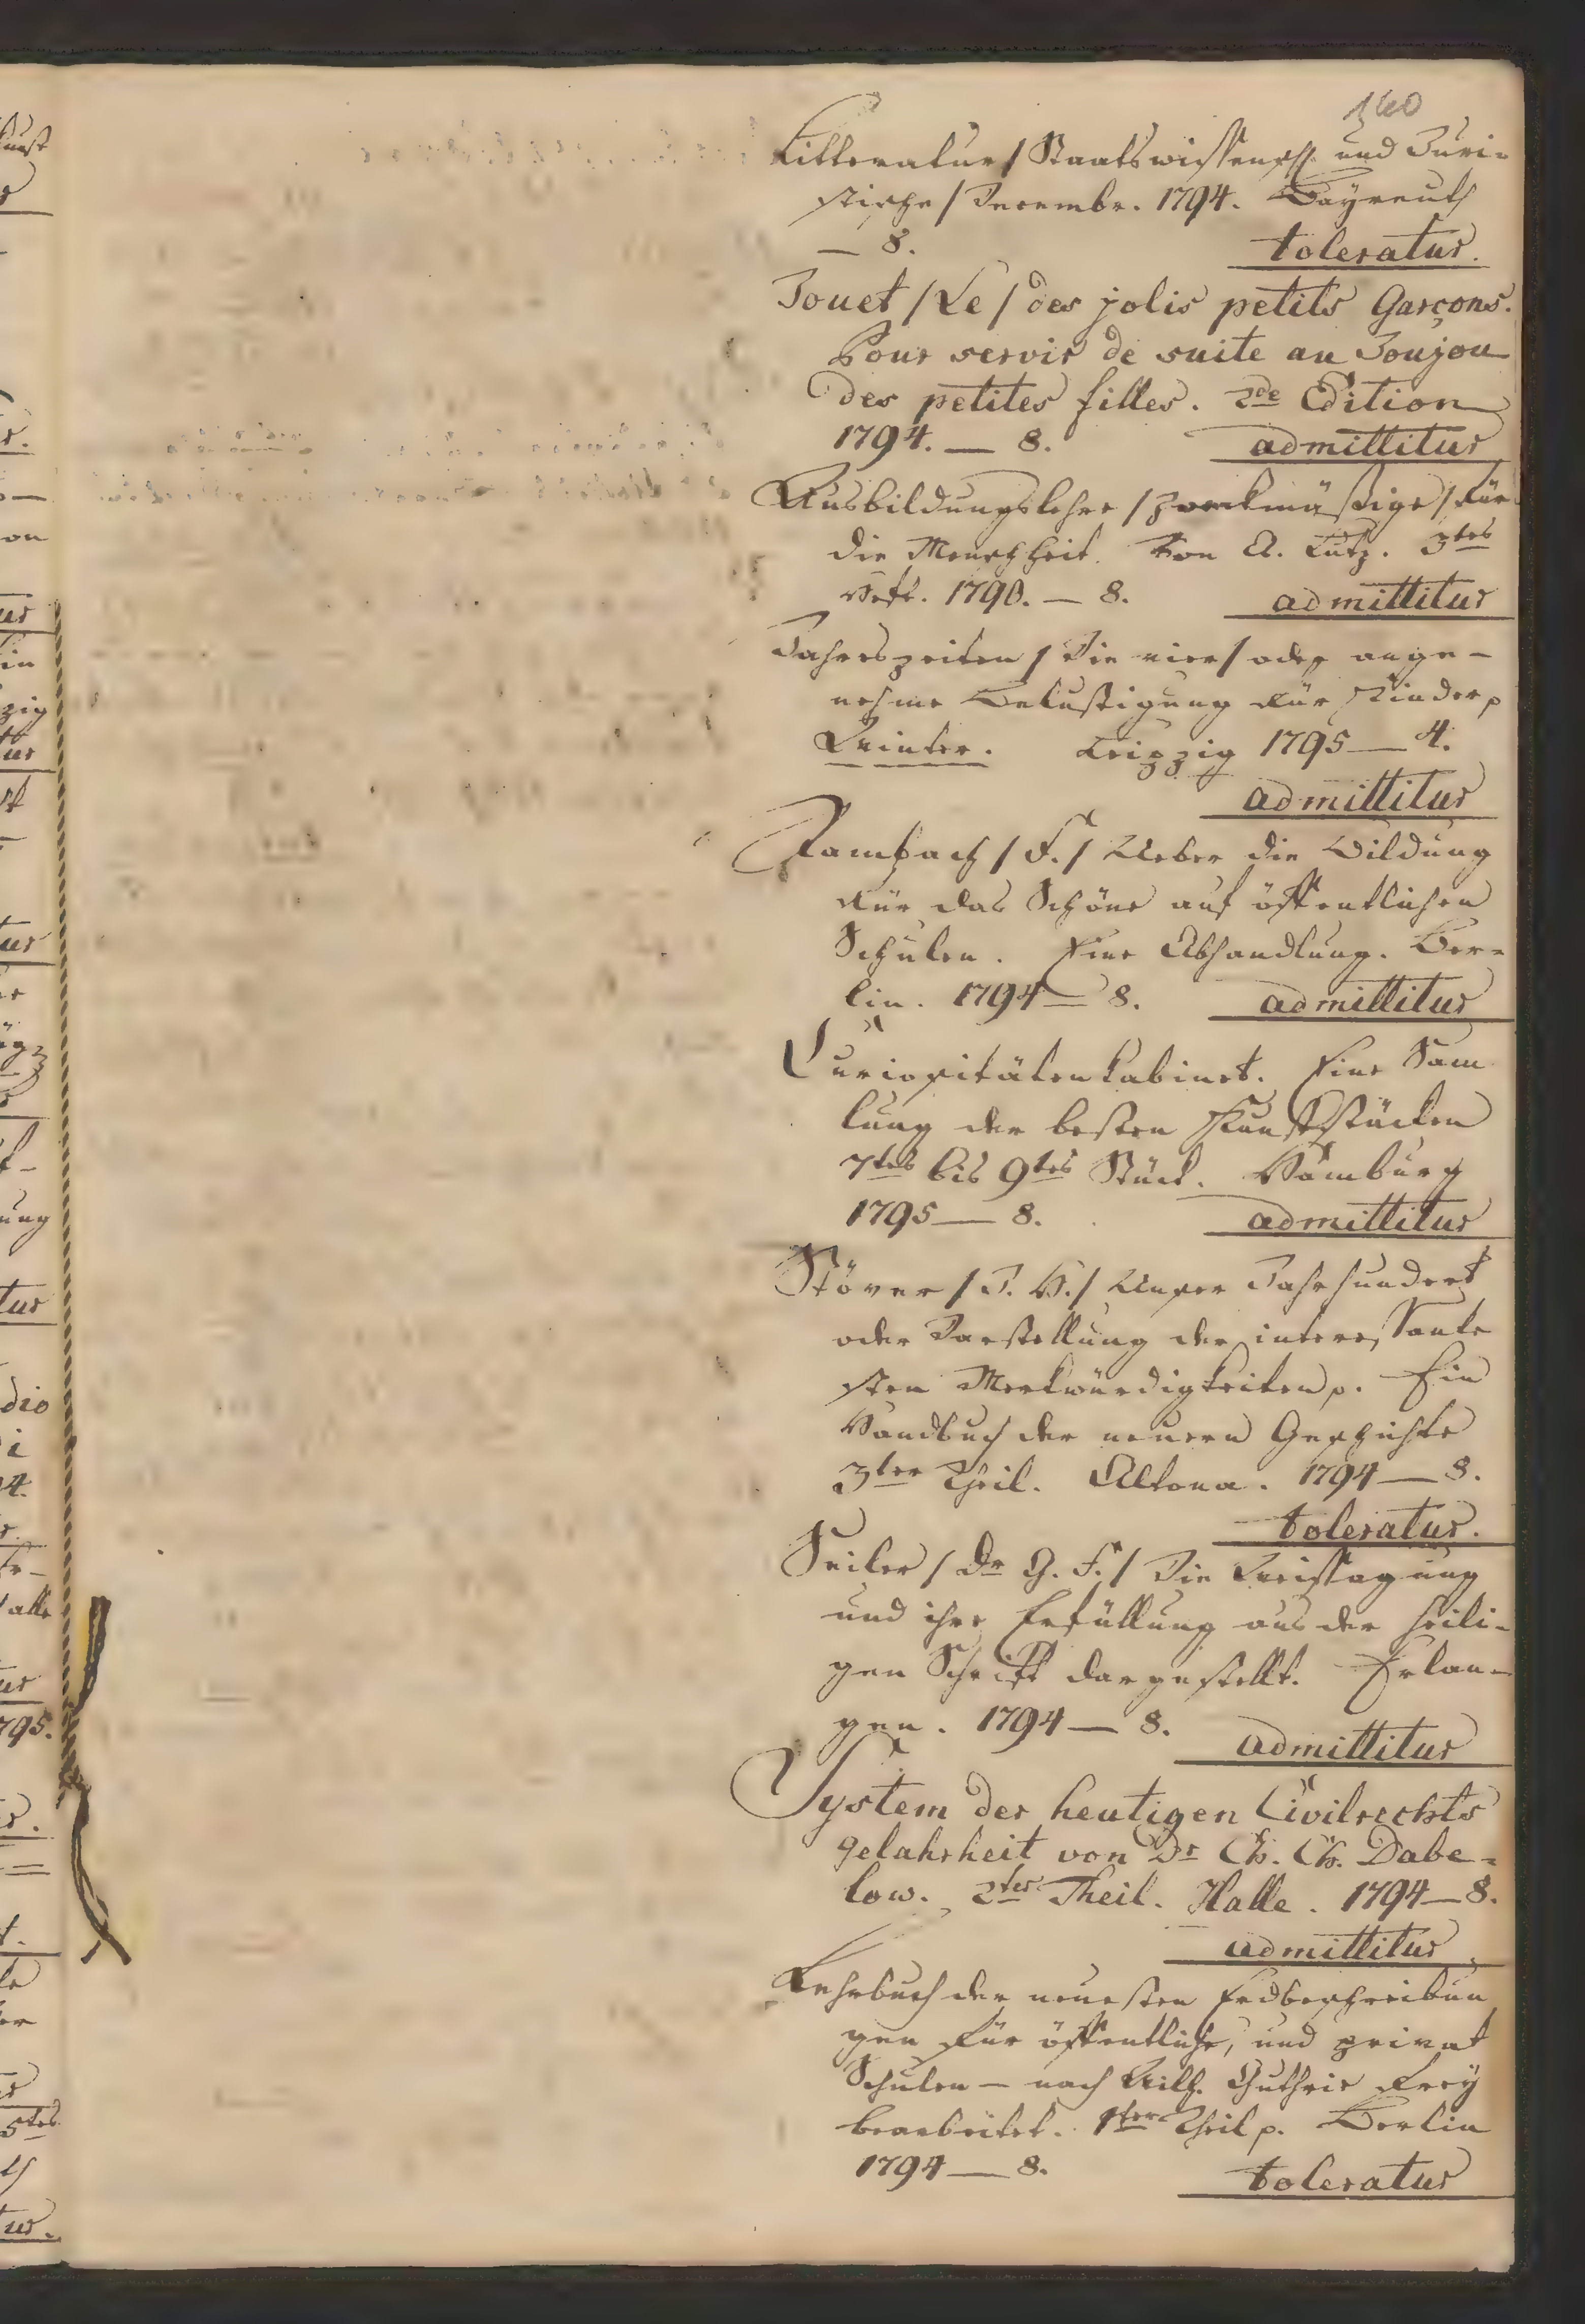 160
Litteratur / Staatswissensch. und Juri-
stische / Decembr. 1794. Bayreuth
— 8. toleratur.
Jouet / Le / des jolis petits Garçons.
Pour servir de suite au Joujou
des petites filles. 2de Edition
1794. — 8. admittitur
Ausbildungslehre / zweckmäßige / für
die Menschheit. Von A. Lutz. 3tes
Heft. 1790. — 8. admittitur
Jahrszeiten / Die vier / oder ange-
nehme Belustigung für Kinder p
Winter. Leipzig 1795 — 4.
admittitur
Rambach / F. / Ueber die Bildung
für das Schöne auf öffentlichen
Schulen. Eine Abhandlung. Ber-
lin. 1794 — 8. admittitur
Curiositätenkabinet. Eine Sam
lung der besten Kunststücken
7tes bis 9tes Stück. Hamburg
1795 — 8. admittitur
Stöver / D. H. / Unser Jahrhundert
oder Darstellung der interessante
sten Merkwürdigkeiten p. Ein
Handbuch der neuern Geschichte
3ter Theil. Altona. 1794 — 8.
toleratur.
Seiler / Dr G. F. / Die Weissagung
und ihre Erfüllung aus der heili-
gen Schrift dargestellt. Erlan-
gen. 1794 — 8. admittitur
System der heutigen Civilrechts
gelahrheit von Dr Ch. Ch. Dabe-
low. 2ter Theil. Halle. 1794 — 8.
admittitur.
Lehrbuch der neuesten Erdbeschreibun
gen für öffentliche, und privat
Schulen — nach Wilh. Guthrie frey
bearbeitet. 1ter Theil p. Berlin
1794 — 8. toleratur